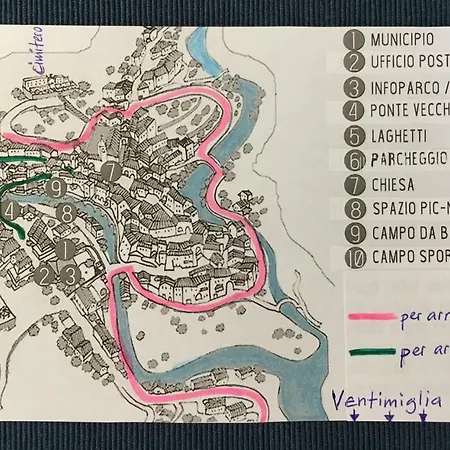 Cimitero
1 MUNICIPIO
2 UFFICIO POST
3 INFOPARCO /
4 PONTE VECCH
5 LAGHETTI
6 PARCHEGGIO
7 CHIESA
8 SPAZIO PIC-N
9 CAMPO DA B
10 CAMPO SPOR
7
9
8
4
1
2 3
per arr
per ar
Ventimiglia